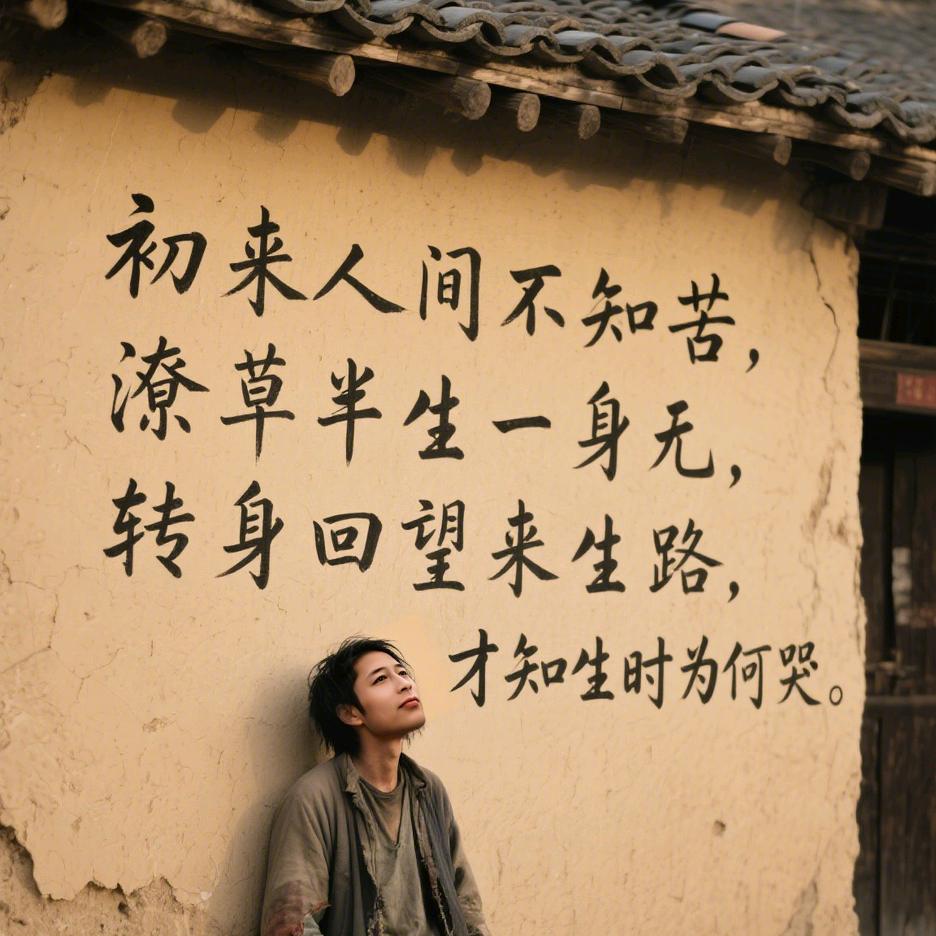 初来人间不知苦，
潦草半生一身无，
转身回望来生路，
才知生时为何哭。